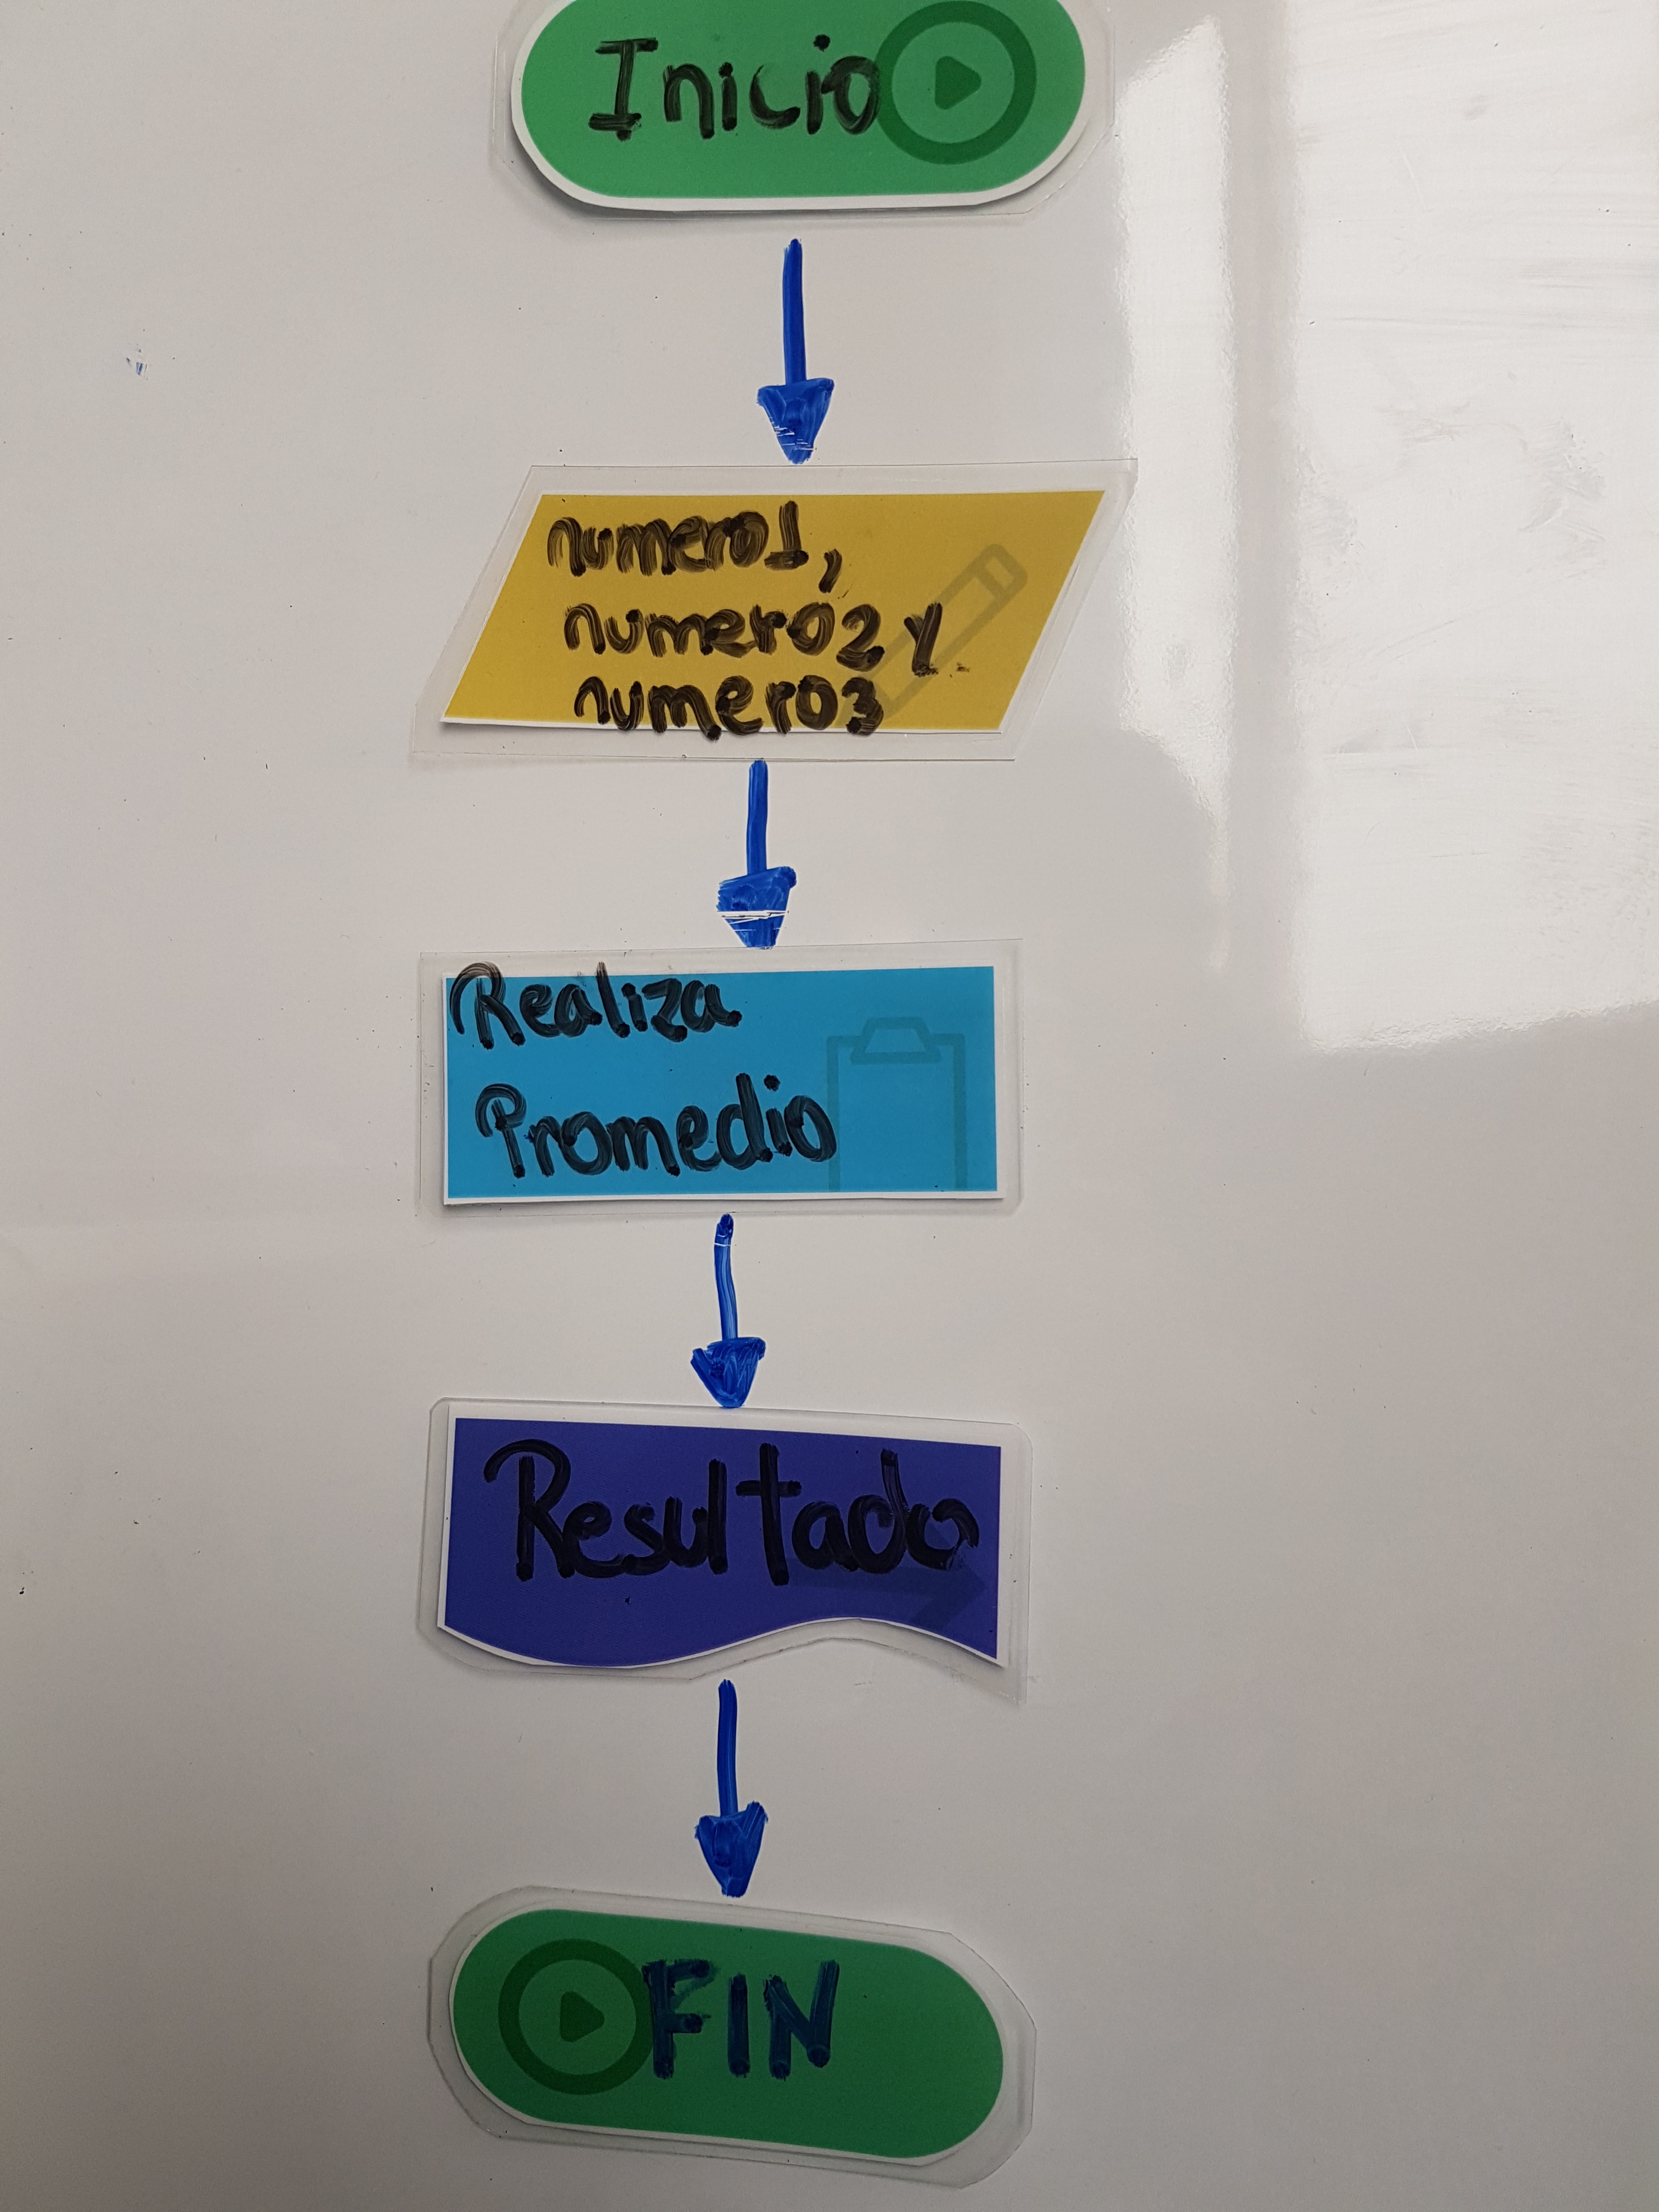 Inicio
numero1,
numero2 y
numero3
Realiza
Promedio
Resultado
FIN